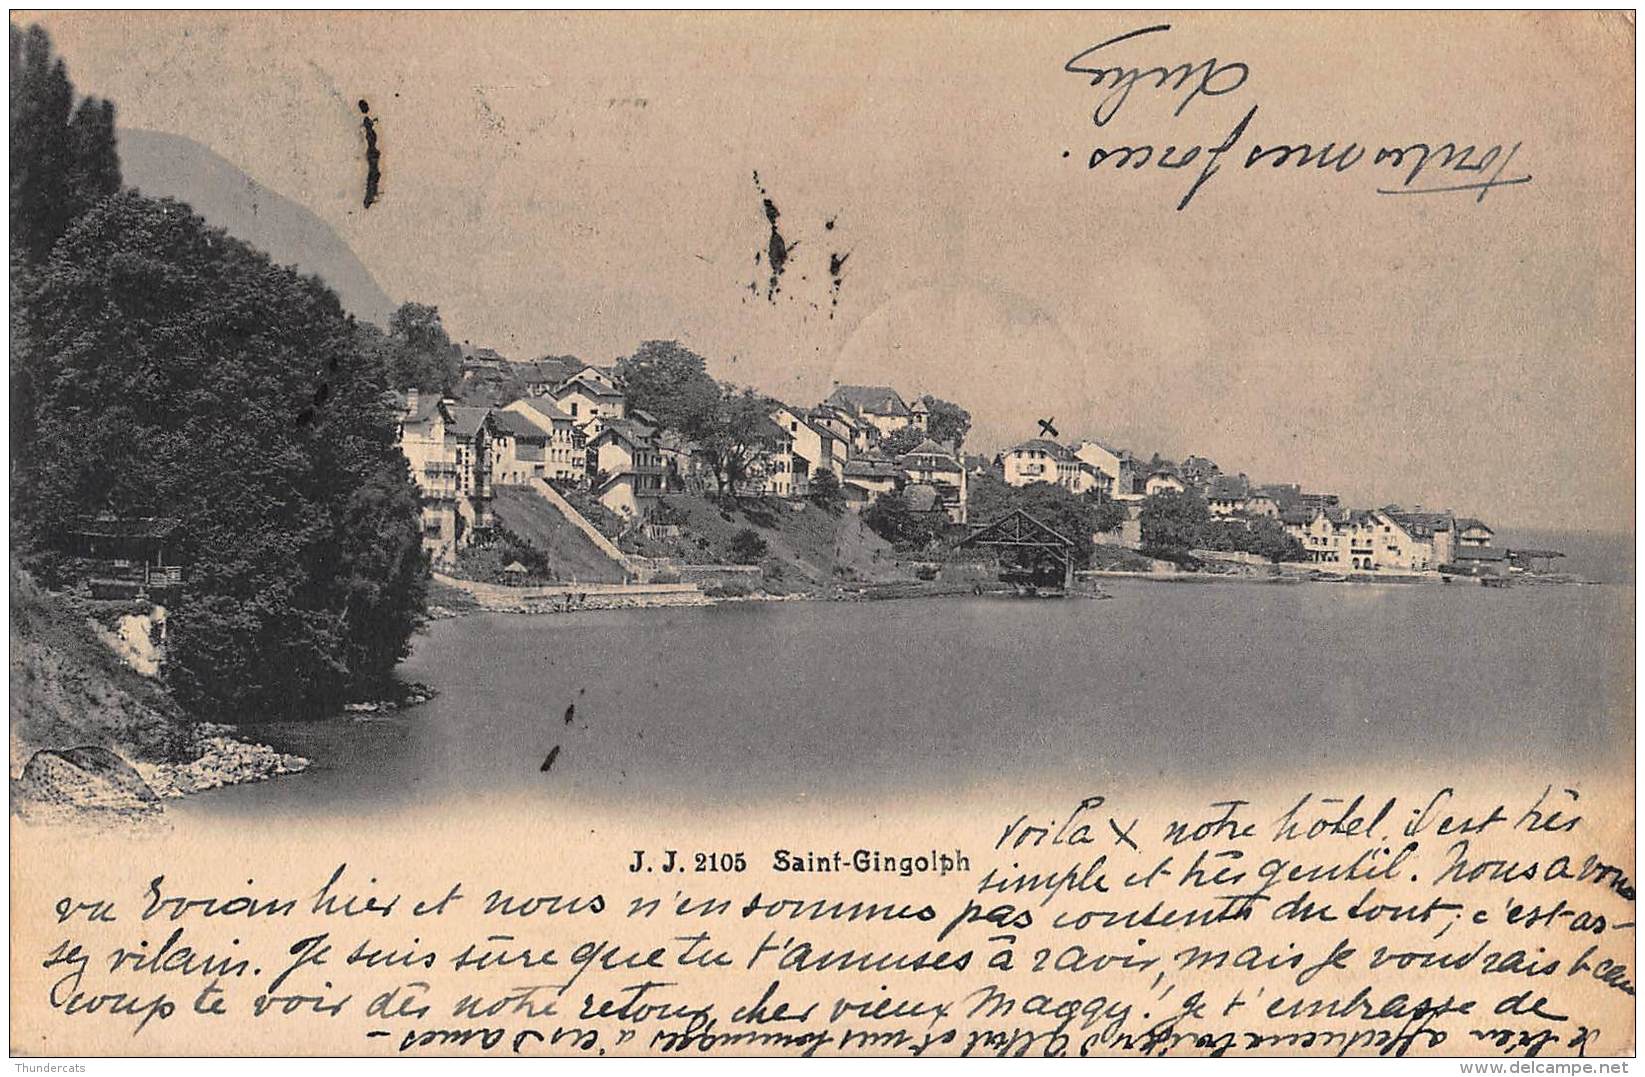 J. J. 2105 Saint-Gingolph
voila X notre hôtel, il est très
simple et très gentil. Nous avons
vu Evian hier et nous n'en sommes pas contents du tout, c'est as-
sez vilain. Je suis sûre que tu t'amuses à ravir, mais je voudrais beau
coup te voir dès notre retour, cher vieux Maggy! Je t'embrasse de
toutes mes forces.
et mes hommages à ces Dames -
Thundercats
delcampe.net